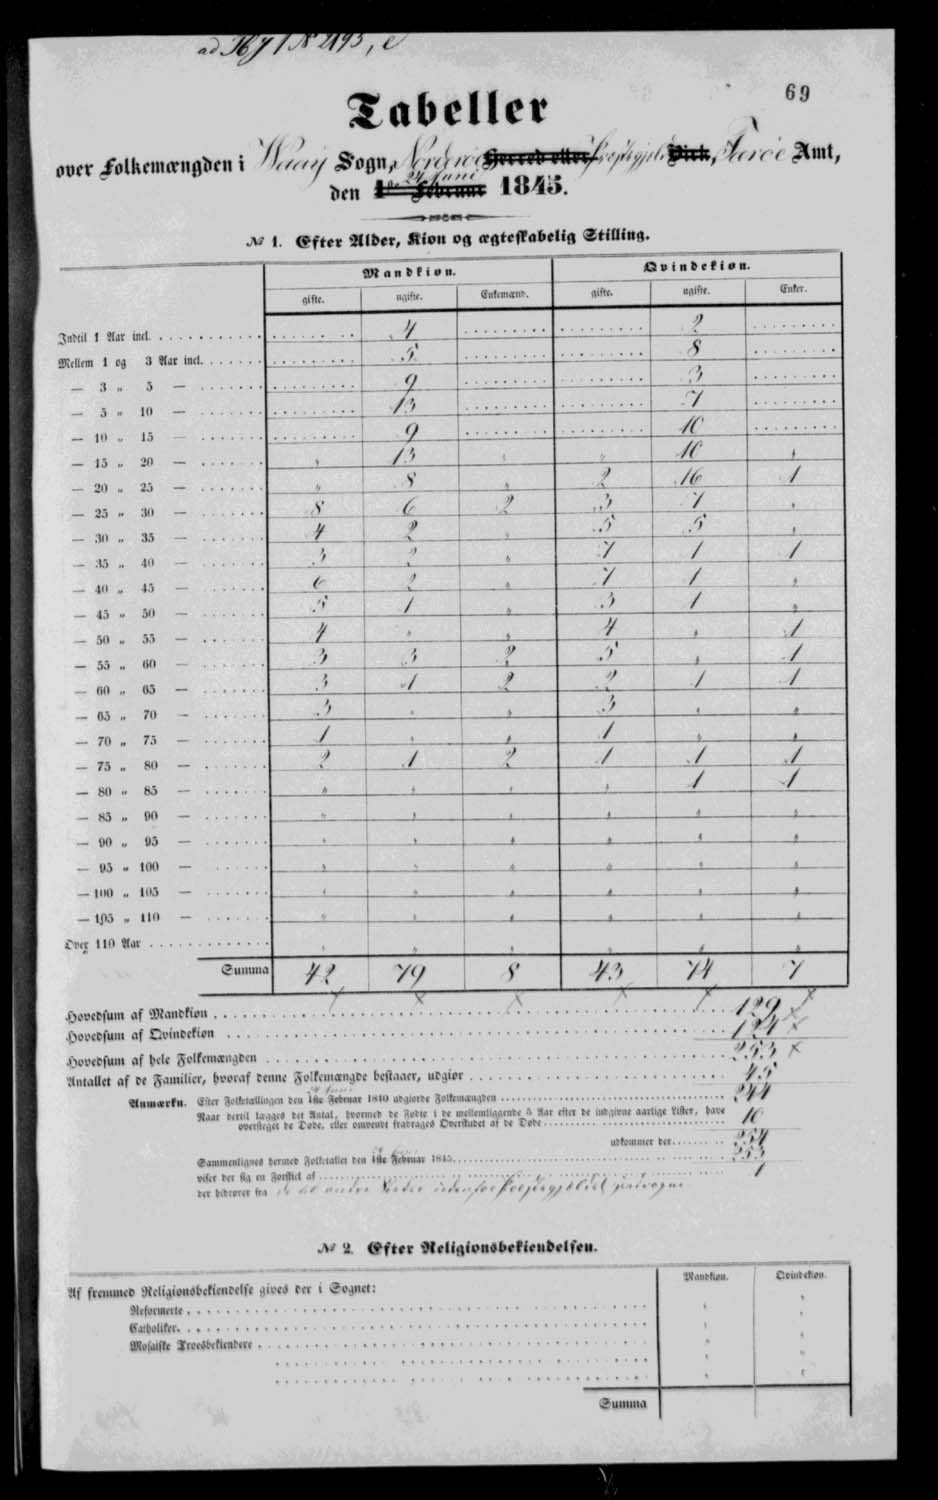 ad N 2193, e
69
Tabeller
over Folkemængden i Waaij Sogn, Norderöe Herred eller Præstegjeld Birk, Færöe Amt,
24 Juni
den 1de Februar 1845.
№ 1. Efter Alder, Kion og ægteskabelig Stilling.
Mandkiøn. Qvindekiøn.
gifte. ugifte. Enkemænd. gifte. ugifte. Enker.
Indtil 1 Aar incl. 4 2
Mellem 1 og 3 Aar incl. 5 8
— 3 „ 5 — 9 3
— 5 „ 10 — 13 7
— 10 „ 15 — 9 10
— 15 „ 20 — „ 13 „ „ 10 „
— 20 „ 25 — „ 8 „ 2 16 1
— 25 „ 30 — 8 6 2 3 7 „
— 30 „ 35 — 4 2 „ 5 5 „
— 35 „ 40 — 3 2 „ 7 1 1
— 40 „ 45 — 6 2 „ 7 1 „
— 45 „ 50 — 5 1 „ 3 1 „
— 50 „ 55 — 4 „ „ 4 „ 1
— 55 „ 60 — 3 3 2 5 „ 1
— 60 „ 65 — 3 1 2 2 1 1
— 65 „ 70 — 3 „ „ 3 „ „
— 70 „ 75 — 1 „ „ 1 „ „
— 75 „ 80 — 2 1 2 1 1 1
— 80 „ 85 — „ „ „ „ 1 1
— 85 „ 90 — „ „ „ „ „ „
— 90 „ 95 — „ „ „ „ „ „
— 95 „ 100 — „ „ „ „ „ „
— 100 „ 105 — „ „ „ „ „ „
— 105 „ 110 — „ „ „ „ „ „
Over 110 Aar „ „ „ „ „ „
Summa 42 79 8 43 74 7
Hovedsum af Mandkiøn 129
Hovedsum af Qvindekiøn 124
Hovedsum af hele Folkemængden 253
Antallet af de Familier, hvoraf denne Folkemængde bestaaer, udgiør 45
Anmærkn. Efter Folketællingen den 1ste Februar 1840 udgiorde Folkemængden 244
Naar dertil lægges det Antal, hvormed de Fødte i de mellemliggende 5 Aar efter de indgivne aarlige Lister, have
oversteget de Døde, eller omvendt fradrages Overskudet af de Døde 10
udkommer der 254
Sammenlignes dermed Folketallet den 1ste Februar 1845 253
viser der sig en Forskiel af 1
der hidrører fra de til andre Steder udenfor Præstegjældet
№ 2. Efter Religionsbekiendelsen.
Mandkiøn. Qvindekiøn.
Af fremmed Religionsbekiendelse gives der i Sognet:
Reformerte „ „
Catholiker „ „
Mosaiske Troesbekiendere „ „
Summa